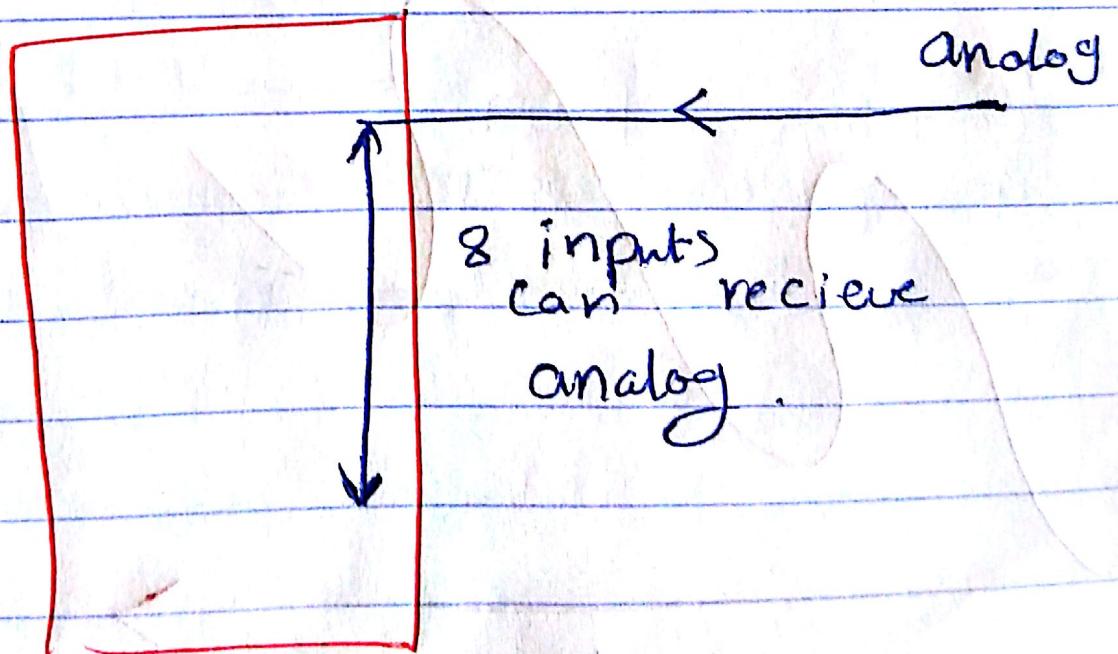 analog
8 inputs
can recieve
analog.